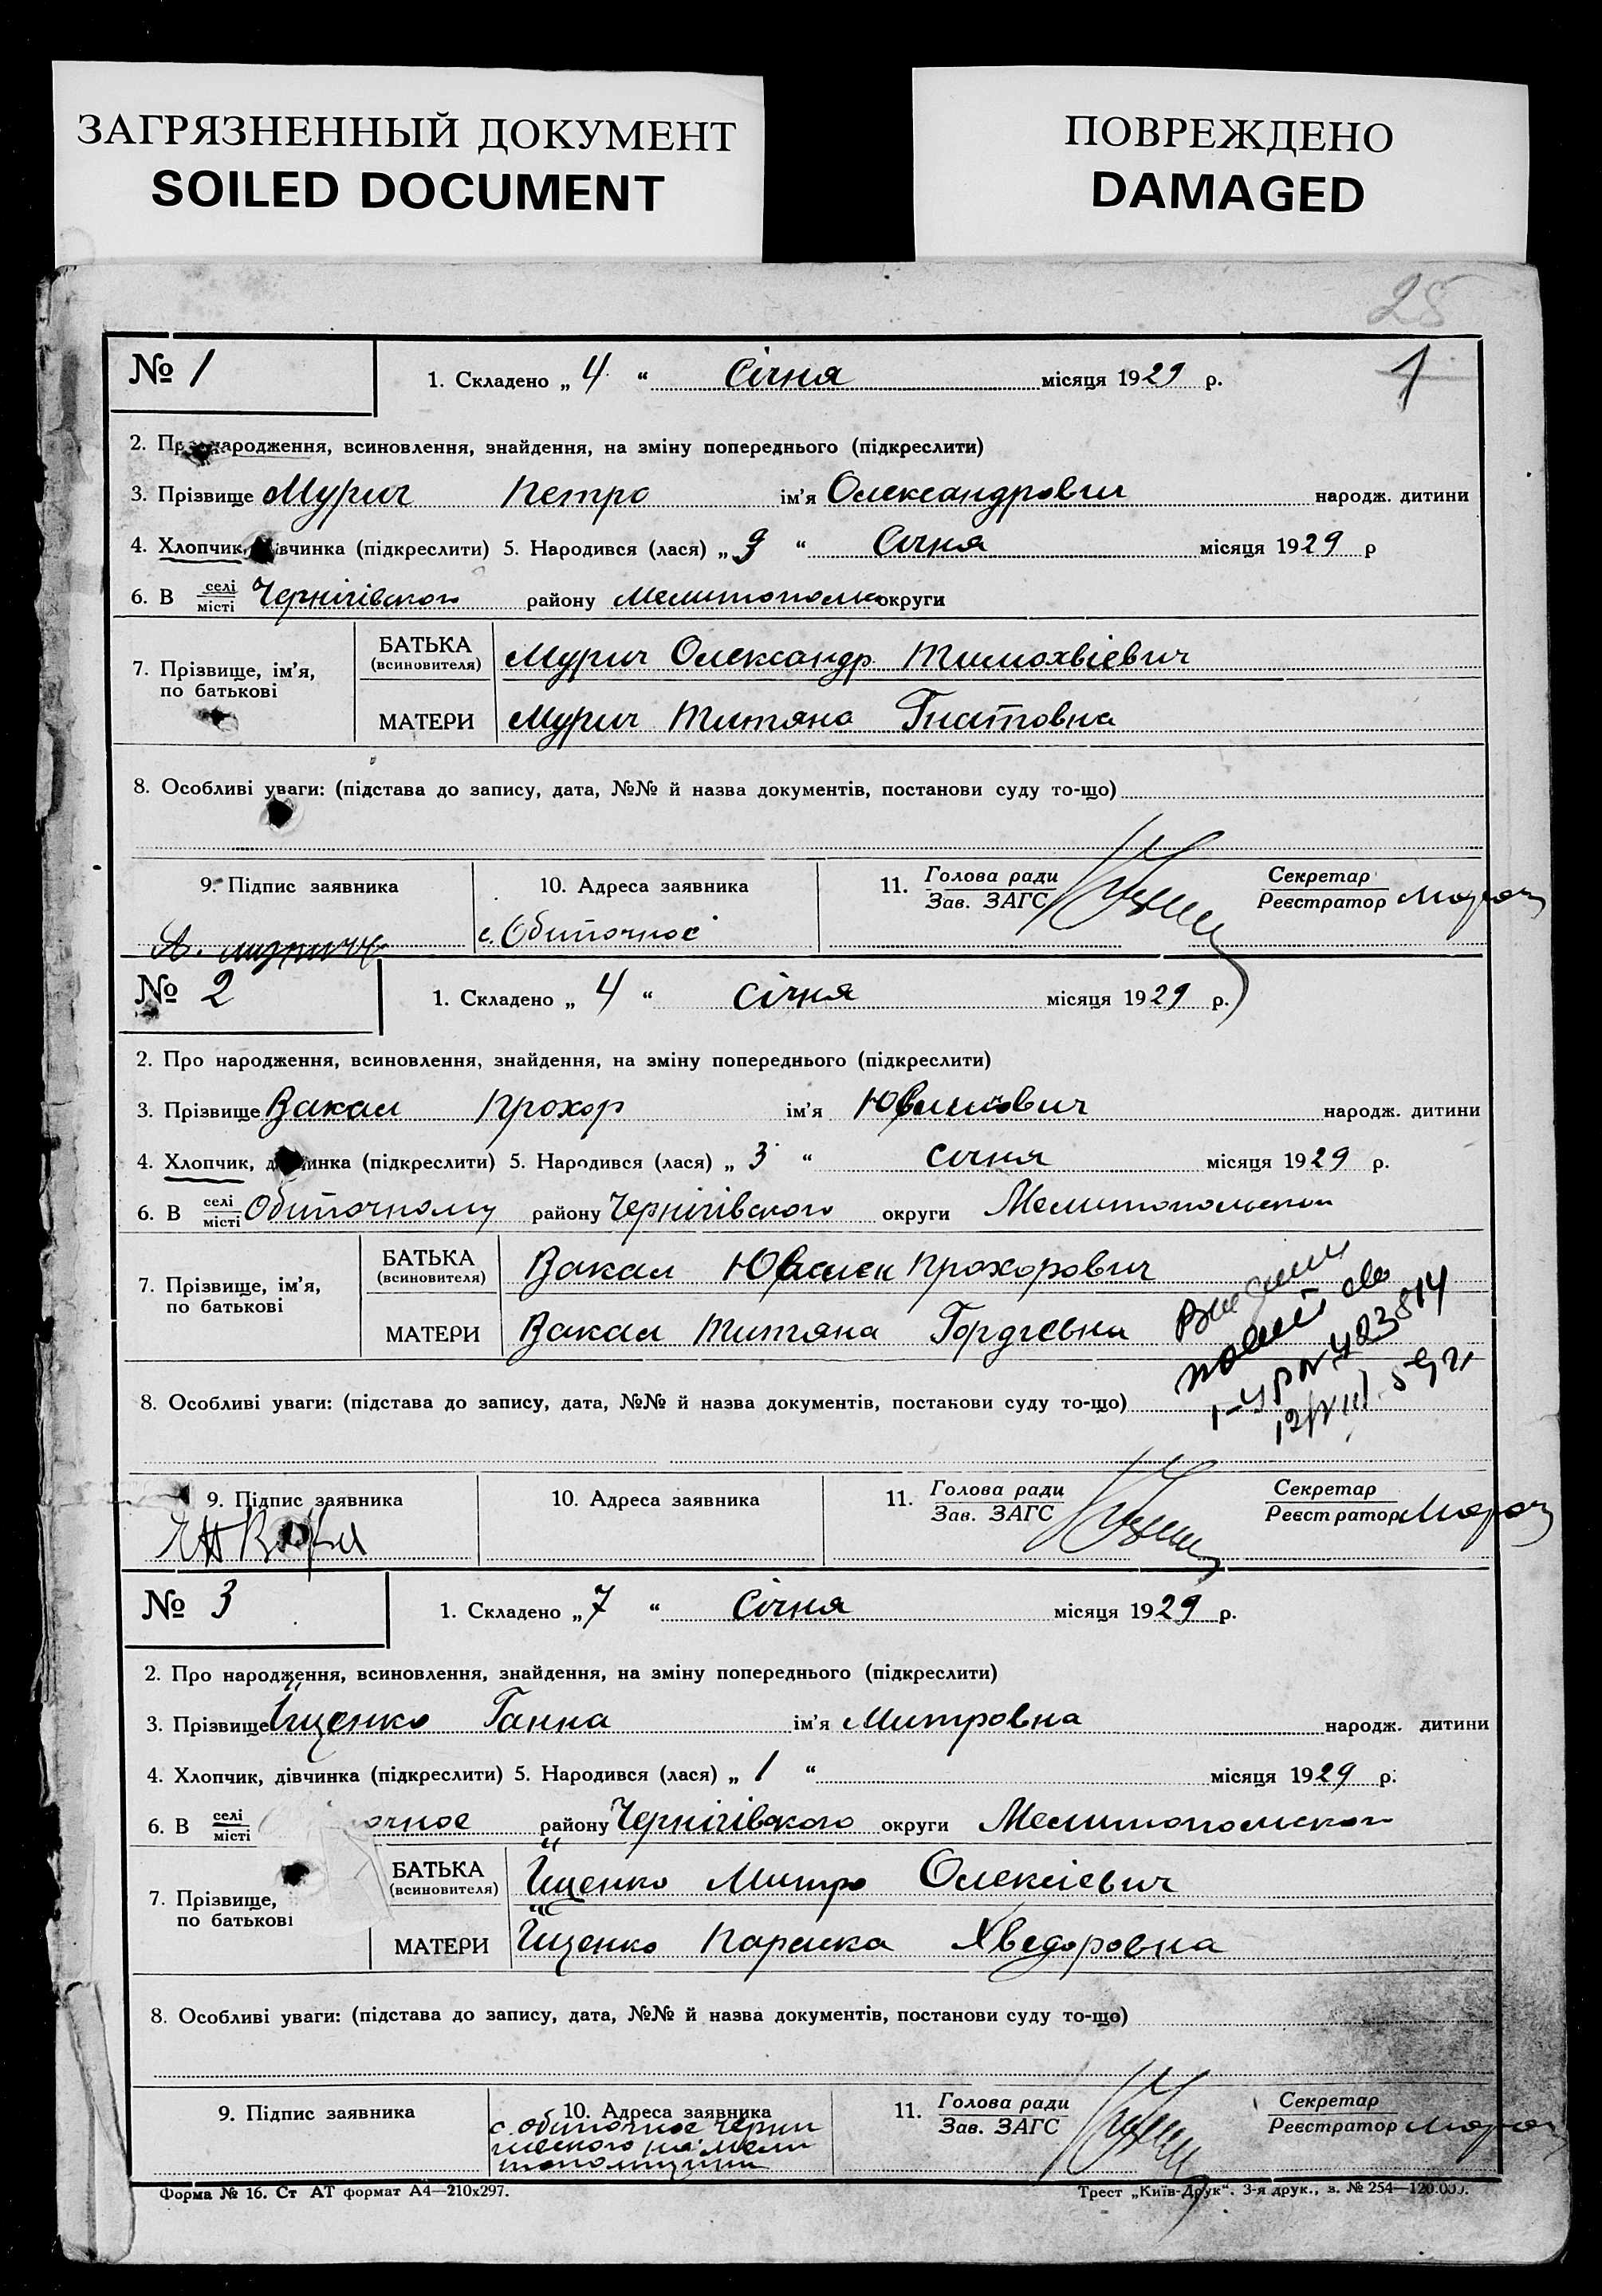 ЗАГРЯЗНЕННЫЙ ДОКУМЕНТ
SOILED DOCUMENT
ПОВРЕЖДЕНО
DAMAGED
25
№ 1
1. Складено „ 4 “ Січня місяця 1929 р.
1
2. Про народження, всиновлення, знайдення, на зміну попереднього (підкреслити)
3. Прізвище Мурич Петро ім’я Олександрович народж. дитини
4. Хлопчик, дівчинка (підкреслити) 5. Народився (лася) „ 3 “ Січня місяця 1929 р
6. В селі місті Чернігівского району Мелитополь округи
7. Прізвище, ім’я, по батькові
БАТЬКА (всиновителя) Мурич Олександр Тимохвієвич
МАТЕРИ Мурич Титяна Гнатовна
8. Особливі уваги: (підстава до запису, дата, №№ й назва документів, постанови суду то-що)
9. Підпис заявника
10. Адреса заявника
11. Голова ради Зав. ЗАГС
Секретар Реєстратор
с. Обиточное
№ 2
1. Складено „ 4 “ Січня місяця 1929 р.
2. Про народження, всиновлення, знайдення, на зміну попереднього (підкреслити)
3. Прізвище Вакал Прохор ім’я народж. дитини
4. Хлопчик, дівчинка (підкреслити) 5. Народився (лася) „ 3 “ Січня місяця 1929 р.
6. В селі місті Обиточному району Чернігівского округи Мелитопольской
7. Прізвище, ім’я, по батькові
БАТЬКА (всиновителя) Вакал Прохорович
МАТЕРИ Вакал Титяна Гордеевна
8. Особливі уваги: (підстава до запису, дата, №№ й назва документів, постанови суду то-що)
9. Підпис заявника
10. Адреса заявника
11. Голова ради Зав. ЗАГС
Секретар Реєстратор
№ 3
1. Складено „ 7 “ Січня місяця 1929 р.
2. Про народження, всиновлення, знайдення, на зміну попереднього (підкреслити)
3. Прізвище Іщенко Ганна ім’я Митровна народж. дитини
4. Хлопчик, дівчинка (підкреслити) 5. Народився (лася) „ 1 “ місяця 1929 р.
6. В селі місті очное району Чернігівского округи Мелитопольской
7. Прізвище, по батькові
БАТЬКА (всиновителя) Іщенко Митро Олексієвич
МАТЕРИ Іщенко Параска Хведоровна
8. Особливі уваги: (підстава до запису, дата, №№ й назва документів, постанови суду то-що)
9. Підпис заявника
10. Адреса заявника
11. Голова ради Зав. ЗАГС
Секретар Реєстратор
с. Обиточное
Форма № 16. Ст АТ формат А4—210х297.
Трест „Київ-Друк“. 3-я друк., з. № 254—120.000.